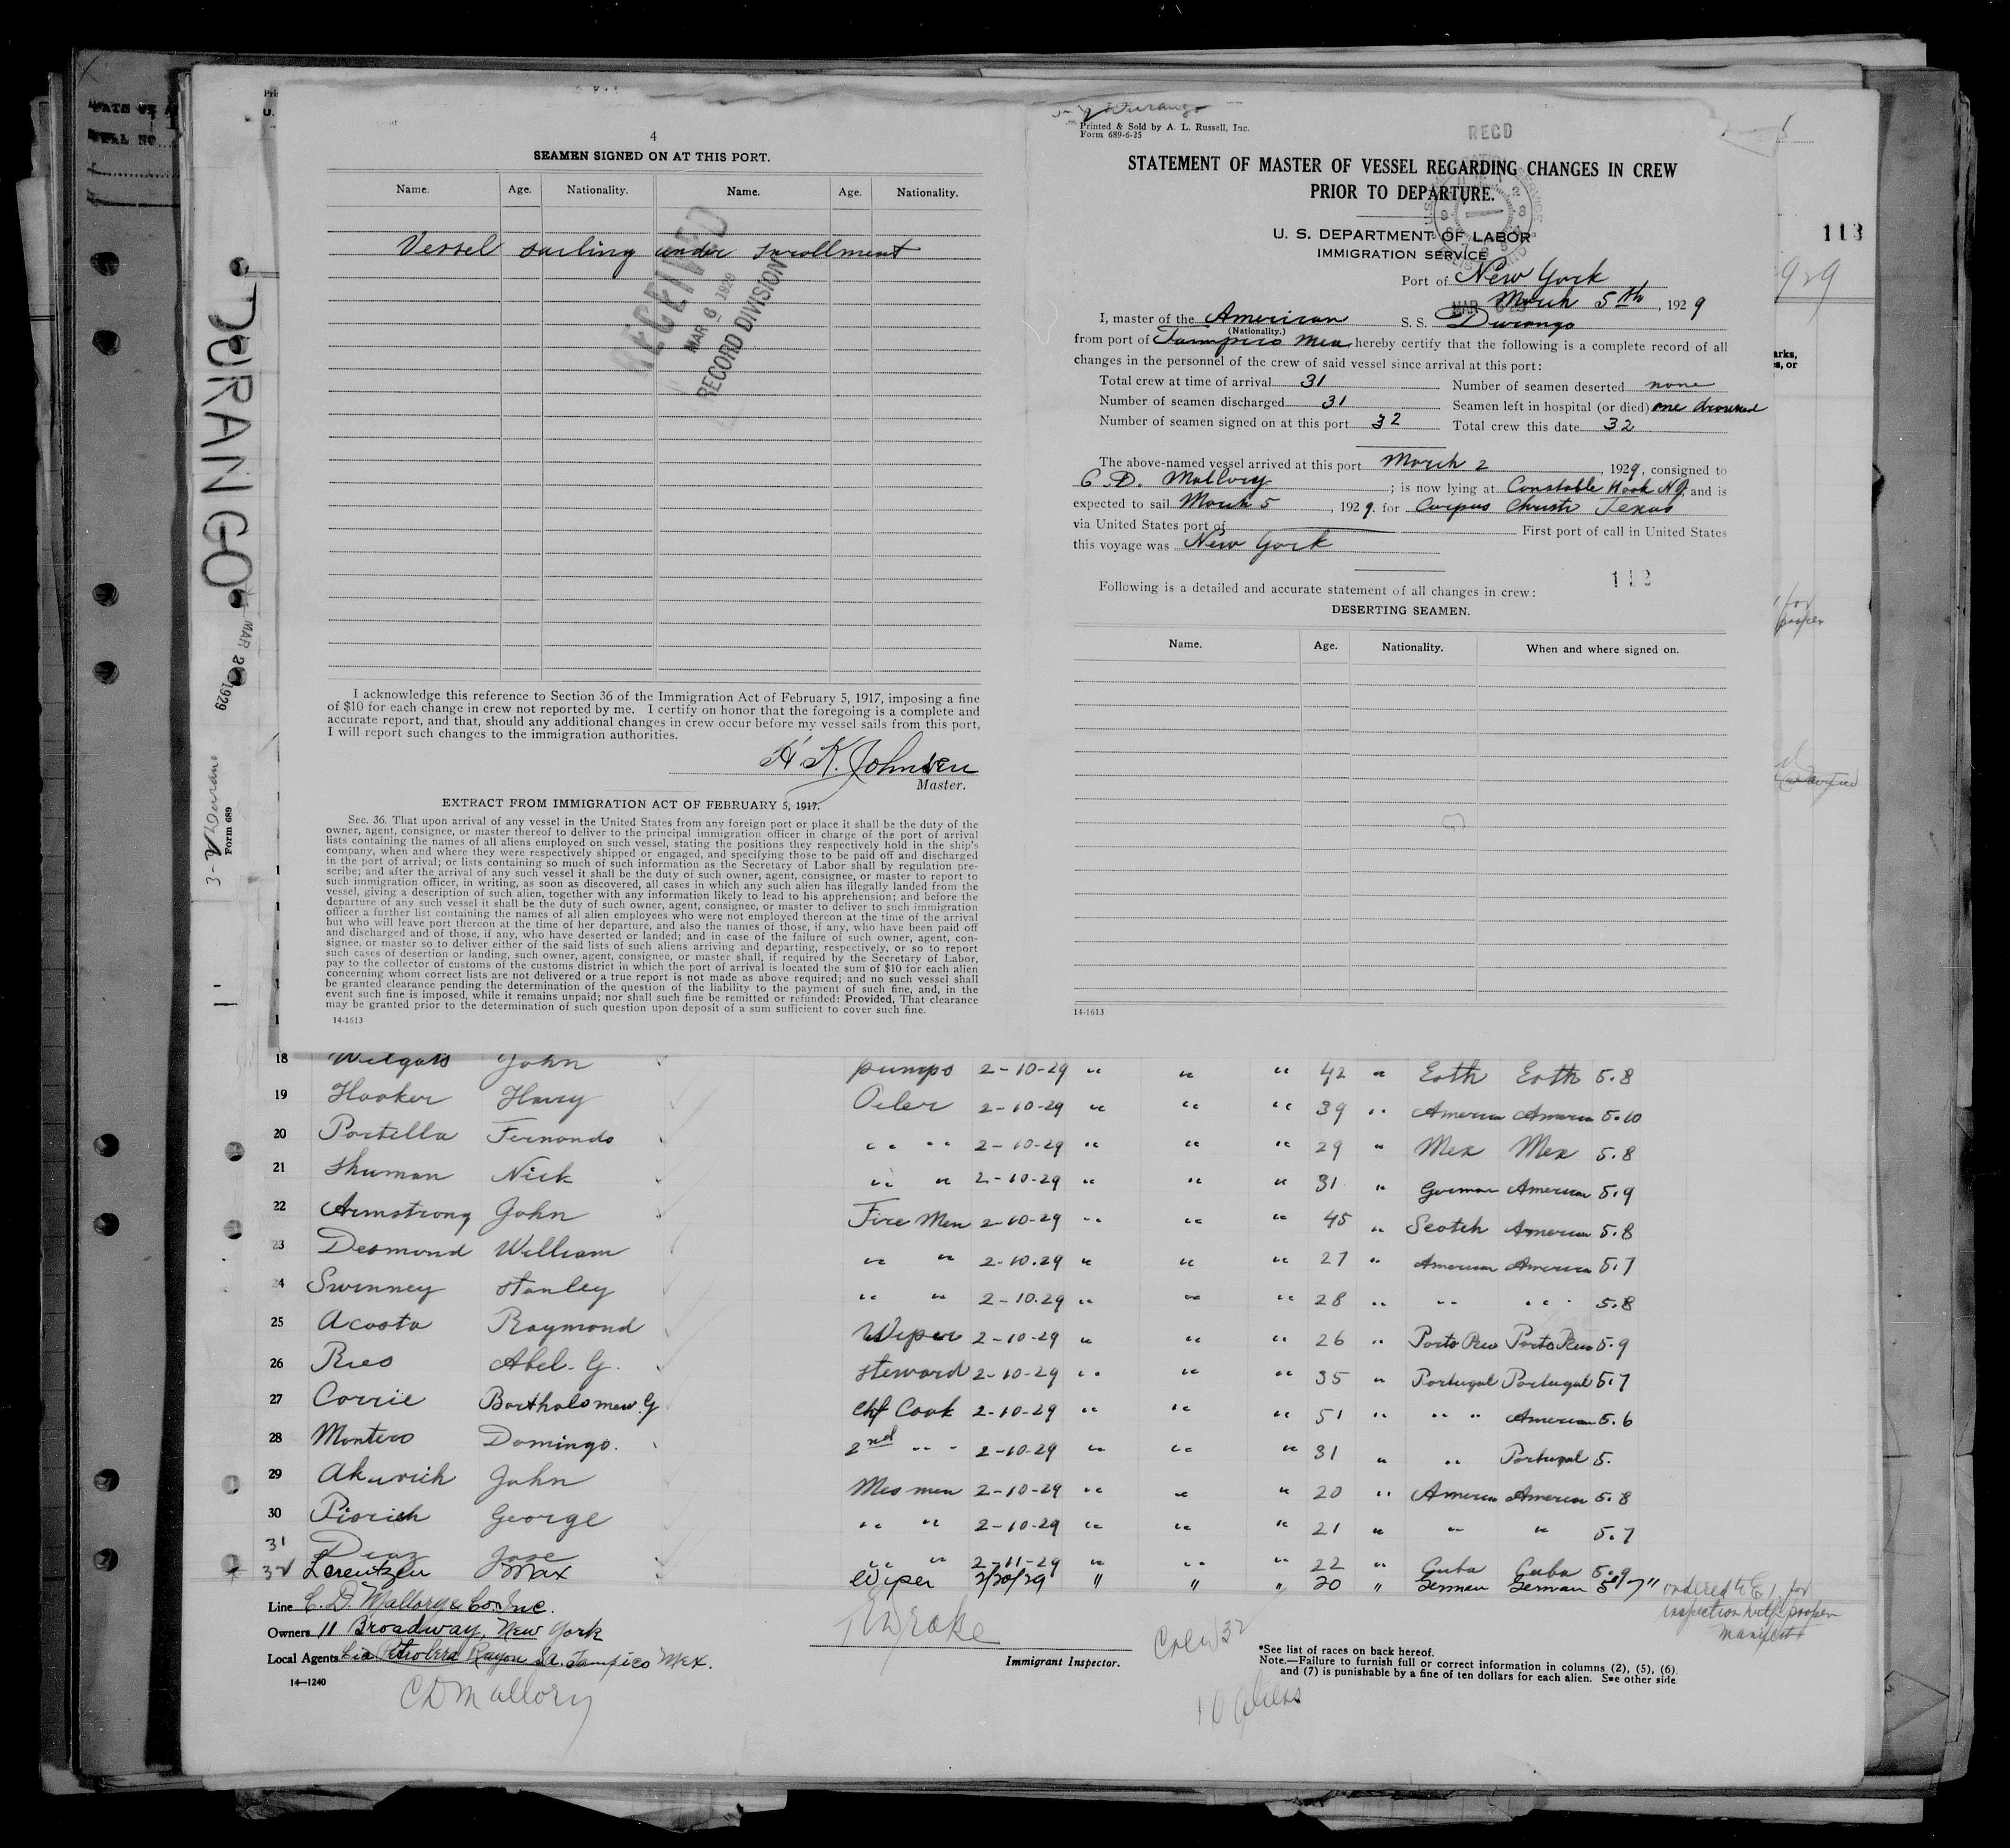 4
SEAMEN SIGNED ON AT THIS PORT.
Name. Age. Nationality. Name. Age. Nationality.
Vessel sailing under enrollment
RECEIVED
MAR 6 1929
RECORD DIVISION
I acknowledge this reference to Section 36 of the Immigration Act of February 5, 1917, imposing a fine
of $10 for each change in crew not reported by me. I certify on honor that the foregoing is a complete and
accurate report, and that, should any additional changes in crew occur before my vessel sails from this port,
I will report such changes to the immigration authorities.
H. K. Johnsen
Master.
EXTRACT FROM IMMIGRATION ACT OF FEBRUARY 5, 1917.
Sec. 36. That upon arrival of any vessel in the United States from any foreign port or place it shall be the duty of the
owner, agent, consignee, or master thereof to deliver to the principal immigration officer in charge of the port of arrival
lists containing the names of all aliens employed on such vessel, stating the positions they respectively hold in the ship's
company, when and where they were respectively shipped or engaged, and specifying those to be paid off and discharged
in the port of arrival; or lists containing so much of such information as the Secretary of Labor shall by regulation pre-
scribe; and after the arrival of any such vessel it shall be the duty of such owner, agent, consignee, or master to report to
such immigration officer, in writing, as soon as discovered, all cases in which any such alien has illegally landed from the
vessel, giving a description of such alien, together with any information likely to lead to his apprehension; and before the
departure of any such vessel it shall be the duty of such owner, agent, consignee, or master to deliver to such immigration
officer a further list containing the names of all alien employees who were not employed thereon at the time of the arrival
but who will leave port thereon at the time of her departure, and also the names of those, if any, who have been paid off
and discharged and of those, if any, who have deserted or landed; and in case of the failure of such owner, agent, con-
signee, or master so to deliver either of the said lists of such aliens arriving and departing, respectively, or so to report
such cases of desertion or landing, such owner, agent, consignee, or master shall, if required by the Secretary of Labor,
pay to the collector of customs of the customs district in which the port of arrival is located the sum of $10 for each alien
concerning whom correct lists are not delivered or a true report is not made as above required; and no such vessel shall
be granted clearance pending the determination of the question of the liability to the payment of such fine, and, in the
event such fine is imposed, while it remains unpaid; nor shall such fine be remitted or refunded: Provided, That clearance
may be granted prior to the determination of such question upon deposit of a sum sufficient to cover such fine.
14-1613
Durango
Printed & Sold by A. L. Russell, Inc.
Form 689-6-25
RECD
STATEMENT OF MASTER OF VESSEL REGARDING CHANGES IN CREW
PRIOR TO DEPARTURE.
U. S. DEPARTMENT OF LABOR
IMMIGRATION SERVICE
Port of New York
March 5th, 1929
I, master of the American S. S. Durango
(Nationality.)
from port of Tampico Mex, hereby certify that the following is a complete record of all
changes in the personnel of the crew of said vessel since arrival at this port:
Total crew at time of arrival 31 Number of seamen deserted none
Number of seamen discharged 31 Seamen left in hospital (or died) one drowned
Number of seamen signed on at this port 32 Total crew this date 32
The above-named vessel arrived at this port March 2, 1929, consigned to
C. D. Mallory; is now lying at Constable Hook NJ, and is
expected to sail March 5, 1929. for Corpus Christi Texas
via United States port of First port of call in United States
this voyage was New York
113
Following is a detailed and accurate statement of all changes in crew:
DESERTING SEAMEN.
Name. Age. Nationality. When and where signed on.
14-1613
113
1929
DURANGO
MAR 2 1929
3-2 Durango
Form 689
18 John pumps 2-10-29 " " " 42 " Esth Esth 5.8
19 Hooker Harry Oiler 2-10-29 " " " 39 " America America 5.10
20 Portella Fernando " " 2-10-29 " " " 29 " Mex Mex 5.8
21 Shuman Nick " " 2-10-29 " " " 31 " German American 5.9
22 Armstrong John Fire Men 2-10-29 " " " 45 " Scotch American 5.8
23 Desmond William " " 2-10-29 " " " 27 " American America 5.7
24 Swinney Stanley " " 2-10-29 " " " 28 " " " 5.8
25 Acosta Raymond Wiper 2-10-29 " " " 26 " Porto Rico Porto Rico 5.9
26 Ries Abel. G. Steward 2-10-29 " " " 35 " Portugal Portugal 5.7
27 Corrie Bartholomew. G Chf Cook 2-10-29 " " " 51 " " " American 5.6
28 Montero Domingo. 2nd " 2-10-29 " " " 31 " " Portugal 5.
29 Akurich John Mes men 2-10-29 " " " 20 " America America 5.8
30 Piorich George " " 2-10-29 " " " 21 " " " 5.7
31 Diaz Jose " " 2-11-29 " " " 22 " Cuba Cuba 5.9
32 Lorentzen Max Wiper 2/20/29 " " " 20 " German German 5' 7" ordered to E. I. for
inspection with proper
manifest
Line C. D. Mallory & Co. Inc.
Owners 11 Broadway, New York
Local Agents Cia Petrolera Rayon S.A. Tampico Mex.
14—1240
C D Mallory
Drake
Immigrant Inspector.
Crew 32
10 aliens
*See list of races on back hereof.
Note.—Failure to furnish full or correct information in columns (2), (5), (6)
and (7) is punishable by a fine of ten dollars for each alien. See other side